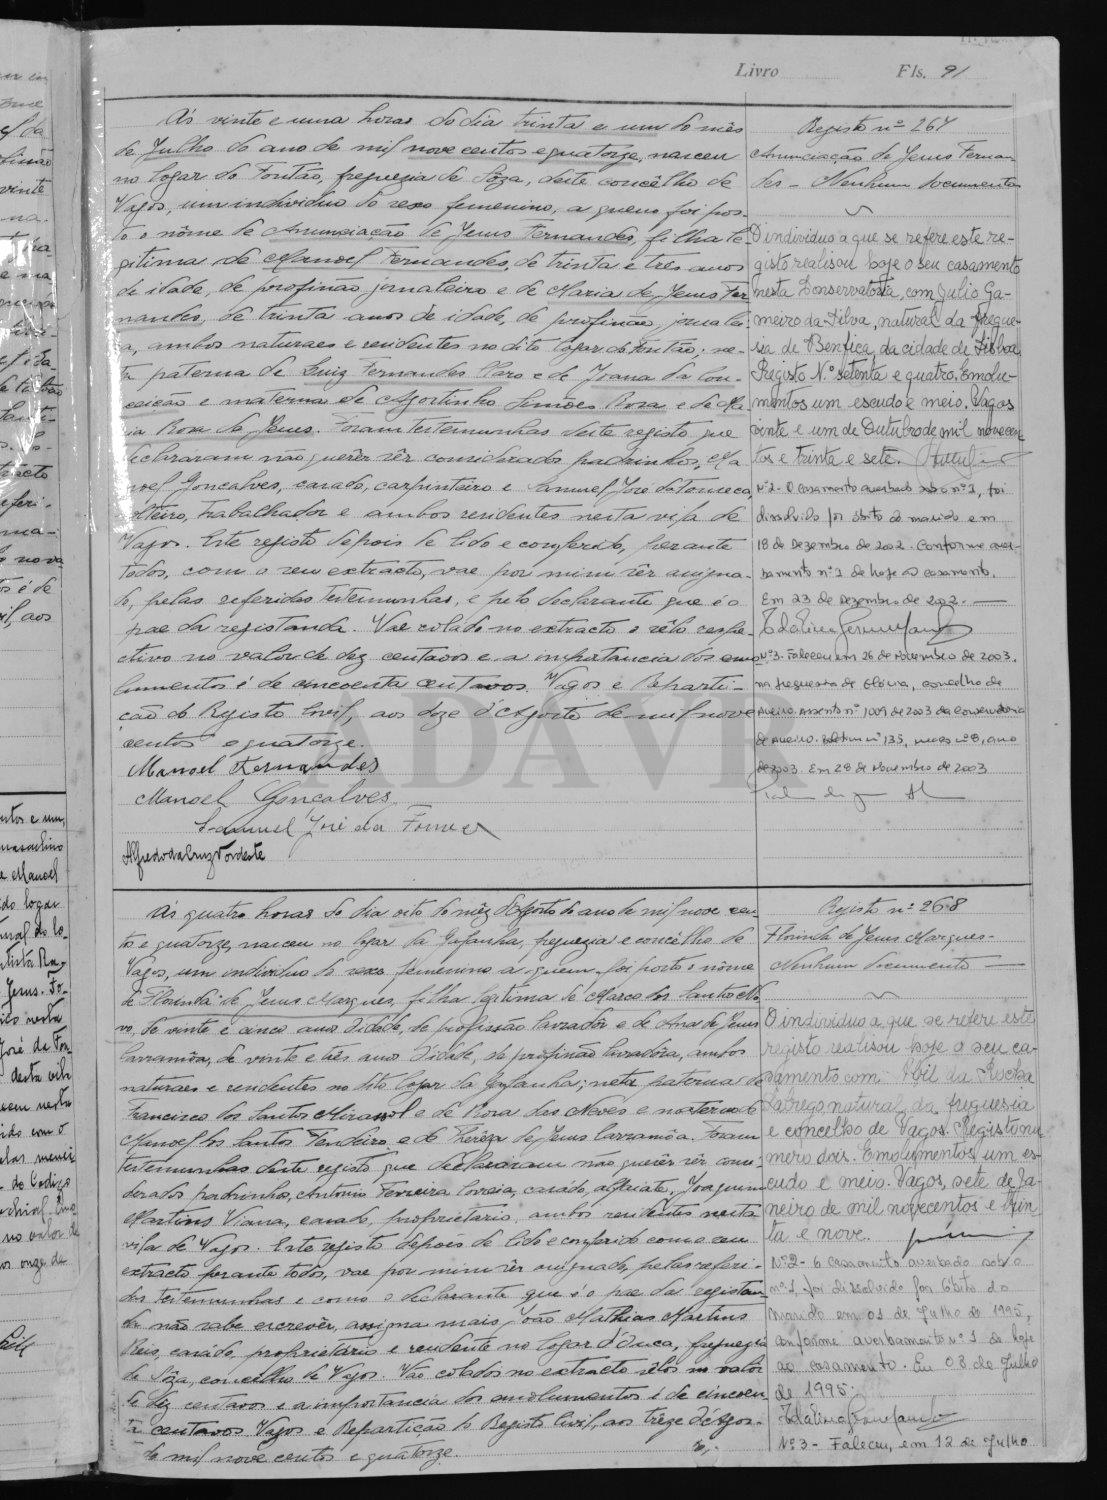 Livro Fls. 91
Ás vinte e uma horas do dia trinta e um do mês
de Julho do ano de mil nove centos e quatorze, nasceu
no logar do Fontão, freguezia de Sôza, deste concêlho de
Vagos, um individuo do sexo femenino, a quem foi pos-
to o nôme de Anunciação de Jesus Fernandes, filha le-
gitima de Manoel Fernandes, de trinta e três anos
de idade, de profissão jornaleiro e de Maria de Jesus Fer
nandes, de trinta anos de idade, de profissão, jornalei-
a, ambos naturaes e residentes no dito logar do Fontão; ne-
ta paterna de Luiz Fernandes Claro e de Joana da Con-
ceição e materna de Agostinho Simões Rosa e de Ma
ria Rosa de Jesus. Foram testemunhas deste registo, que
declararam não querêr sêr considerados padrinhos, Ma
noel Gonçalves, casado, carpinteiro e Samuel José da Fonseca,
solteiro, trabalhador e ambos residentes nesta vila de
Vagos. Este registo depois de lido e conferido, perante
todos, com o seu extracto, vae por mim sêr assigna-
do, pelas referidas testemunhas, e pelo declarante que é o
pae da registanda. Vae colado no extracto o sêlo respe-
ctivo no valor de dez centavos e a importancia dos emo-
lumentos é de cincoenta centavos. Vagos e Reparti-
ção do Registo Civil, aos doze d'Agosto de mil nove
centos e quatorze.
Manoel Fernandes
Manoel Gonçalves
Samuel José da Fonseca
Alfredo da Cruz Nordeste
Registo nº 267
Anunciação de Jesus Fernan-
des - Nenhum documento
O individuo a que se refere este re-
gisto realisou hoje o seu casamento
nesta Conservatoria, com Julio Ga-
meiro da Silva, natural da fregue-
sia de Benfica, da cidade de Lisboa,
Registo N.º setenta e quatro, Emolu-
mentos um escudo e meio. Vagos
vinte e um de Outubro de mil novecen
tos e trinta e sete.
Nº2 - O casamento averbado sob o nº1, foi
dissolvido por óbito do marido em
18 de Dezembro de 2002. Conforme aver-
bamento nº 1 de hoje ao casamento.
Em 23 de Dezembro de 2002. —
Nº3. Faleceu em 26 de Novembro de 2003.
na freguesia de Glória, concelho de
Aveiro. Assento nº 1009 de 2003 da Conservatória
de Aveiro. Boletim nº 135, maço nº 8, ano
de 2003. Em 28 de Novembro de 2003
Ás quatro horas do dia oito do mêz d'Agosto do ano de mil nove cen-
tos e quatorze, nasceu no logar da Gafanha, freguezia e concêlho de
Vagos, um individuo do sexo femenino a quem foi posto o nôme
de Florinda de Jesus Marques, filha legitima de Marco dos Santos No
vo, de vinte e cinco anos d'idade, de profissão lavrador e de Ana de Jesus
Carramôa, de vinte e três anos d'idade, de profissão lavradôra, ambos
naturaes e residentes no dito logar da Gafanha; neta paterna de
Francisco dos Santos Mirasol e de Rosa das Neves e materna de
Manoel dos Santos Tendeiro e de Therêza de Jesus Carramôa. Foram
testemunhas deste registo, que declararam não querêr sêr consi-
derados padrinhos, Antonio Ferreira Correia, casado, alfaiate, Joaquim
Martins Viana, casado, proprietario, ambos residentes nesta
vila de Vagos. Este registo depois de lido e conferido com o seu
extracto perante todos, vae por mim sêr assignado, pelas referi-
das testemunhas e como o declarante que é o pae da registan
da não sabe escrevêr, assigna mais João Mathias Martins
Reis, casado, proprietario e residente no logar d'Ouca, freguezia
de Sôza, concelho de Vagos. Vão colados no extracto sêlos no valôr
de dez centavos e a importancia dos emolumentos é de cincoen
ta centavos Vagos e Repartição do Registo Civil, aos treze d'Agos-
to de mil nove centos e quatorze.
Registo nº 268
Florinda de Jesus Marques -
Nenhum documento —
O individuo a que se refere este
registo realisou hoje o seu ca-
samento com Abil da Rocha
Labrego, natural da freguesia
e concelho de Vagos. Registo nu
mero dois. Emolumentos um es-
cudo e meio. Vagos, sete de Ja-
neiro de mil novecentos e trin
ta e nove.
Nº2 - O casamento averbado sob o
nº1, foi dissolvido por óbito do
marido em 01 de Julho de 1995,
conforme averbamento nº 1 de hoje
ao casamento. Em 03 de Julho
de 1995.
Nº 3 - Faleceu, em 12 de Julho
ADAVR